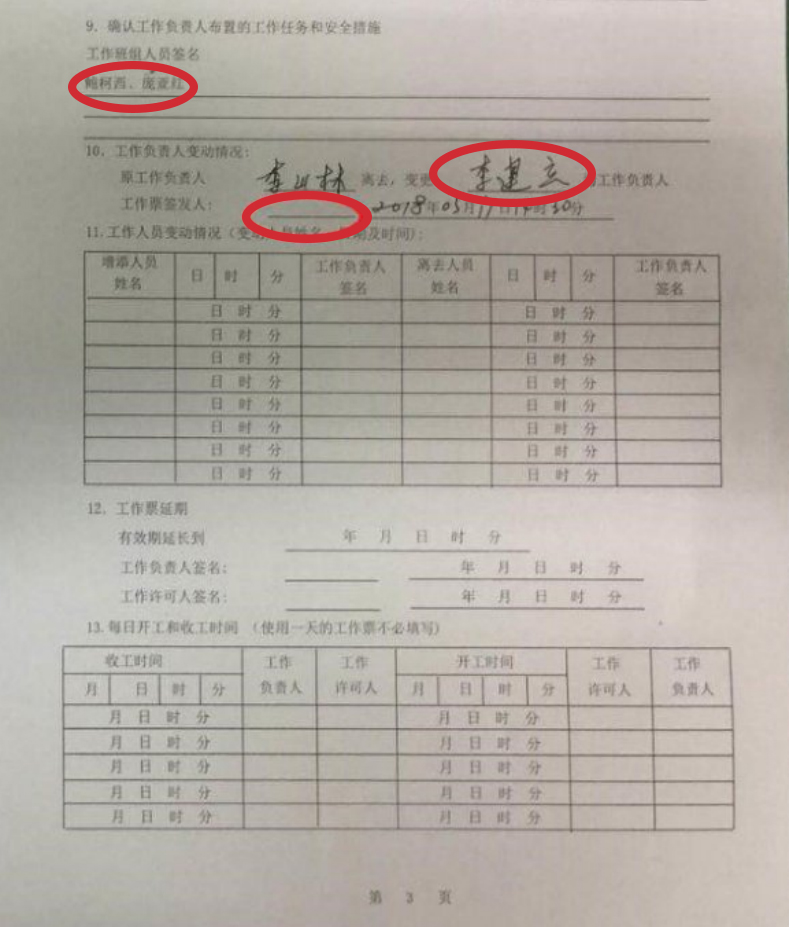 9. 确认工作负责人布置的工作任务和安全措施
工作班组人员签名
鲍柯西、庞亚红
10. 工作负责人变动情况:
原工作负责人 李山林 离去, 变更 李建立 工作负责人
工作票签发人: 2018年05月17日14时30分
11. 工作人员变动情况 (变动人员姓名、日期及时间):
增添人员姓名 日 时 分 工作负责人签名 离去人员姓名 日 时 分 工作负责人签名
日 时 分 日 时 分
日 时 分 日 时 分
日 时 分 日 时 分
日 时 分 日 时 分
日 时 分 日 时 分
日 时 分 日 时 分
日 时 分 日 时 分
日 时 分 日 时 分
12. 工作票延期
有效期延长到 年 月 日 时 分
工作负责人签名: 年 月 日 时 分
工作许可人签名: 年 月 日 时 分
13. 每日开工和收工时间 (使用一天的工作票不必填写)
收工时间 工作负责人 工作许可人 开工时间 工作许可人 工作负责人
月 日 时 分 月 日 时 分
月 日 时 分 月 日 时 分
月 日 时 分 月 日 时 分
月 日 时 分 月 日 时 分
月 日 时 分 月 日 时 分
月 日 时 分 月 日 时 分
第 3 页